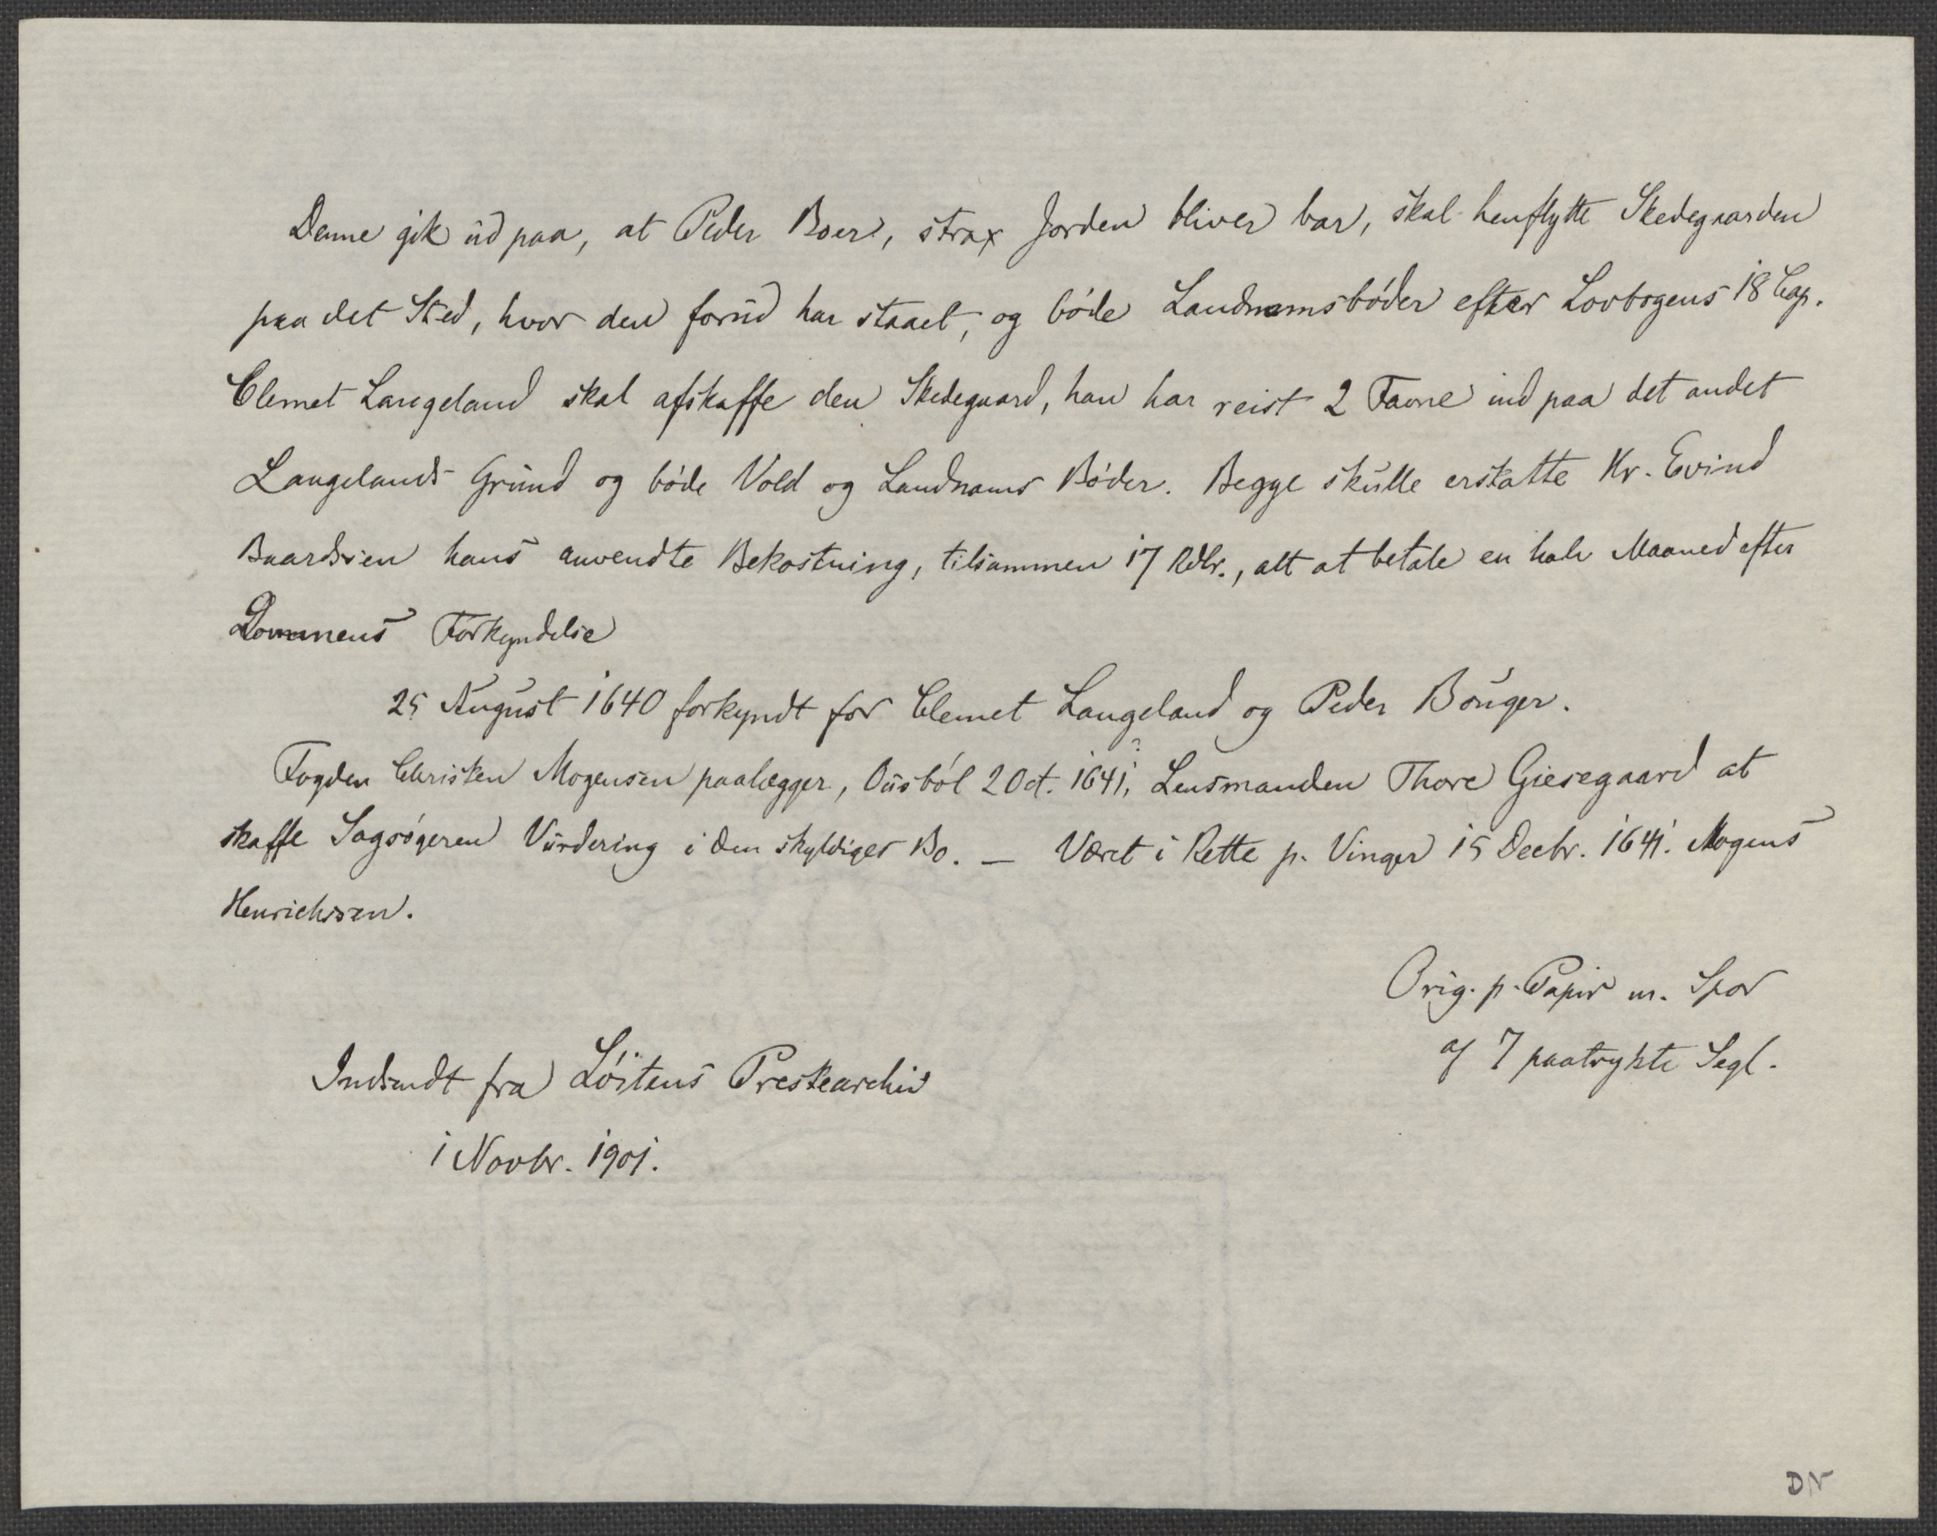 Denne gik ud paa, at Peder Boer, strax Jorden bliver bar, skal henflytte Skedegaarden
paa det Sted, hvor den forud har staaet, og bóde Landnamsbóder efter Lovbogens 18 Cap.
Clemet Langeland skal afskaffe den Skedegaard, han har reist 2 Favne ind paa det andet
Langelands Grund og bóde Vold og Landnams Bóder. Begge skulle erstatte Hr. Evind
Baardssen hans anvendte Bekostning, tilsammen 17 Rdlr., alt at betale en halv Maaned efter
Dommens Forkyndelse
25 August 1640 forkyndt for Clemet Langeland og Peder Bonger.
Fogden Christen Mogensen paalægger, Ousból 2 Oct. 1641,? Lensmanden Thore Giesegaard at
skaffe Sagsógeren Vurdering i den skyldiges Bo. — Været i Rette p. Vinger 15 Decbr. 1641. Mogens
Henrichssen.
Orig. p. Papir m. Spor
af 7 paatrykte Segl.
Indsendt fra Lóitens Prestearchiv
i Novbr. 1901.
DN